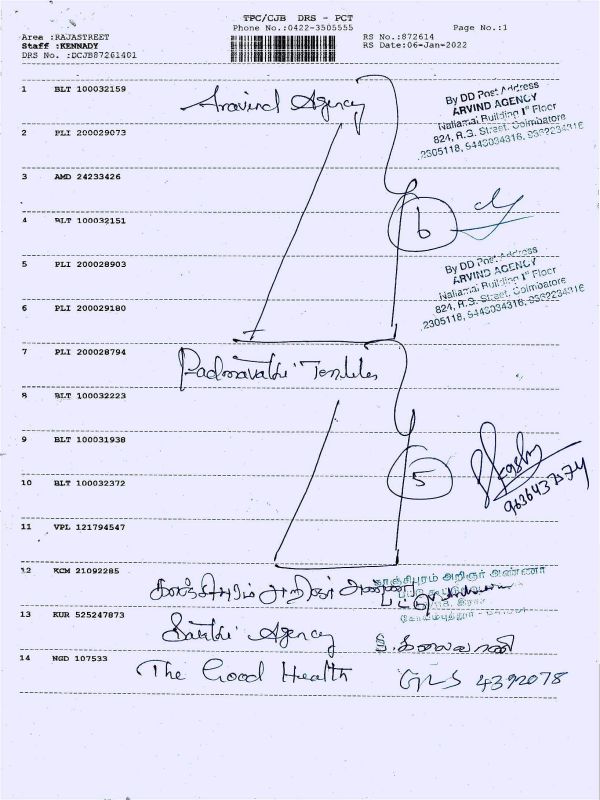 TPC/CJB DRS - PCT
Phone No.:0422-3505555
Page No.:1
Area :RAJASTREET
Staff :KENNADY
DRS No. :DCJB87261401
RS No.:872614
RS Date:06-Jan-2022
1 BLT 100032159
Aravind Agency
By DD Post Address
ARVIND AGENCY
Nallamai Building 1st Floor
824, R.G. Street, Coimbatore
2305118, 9443034316, 9362234316
2 PLI 200029073
3 AMD 24233426
4 BLT 100032151
6
5 PLI 200028903
By DD Post Address
ARVIND AGENCY
Nallamai Building 1st Floor
824, R.G. Street, Coimbatore
2305118, 9443034316, 9362234316
6 PLI 200029180
7 PLI 200028794
Padmavathi Textiles
8 BLT 100032223
9 BLT 100031938
10 BLT 100032372
5
11 VPL 121794547
12 KCM 21092285
காஞ்சிபுரம் அறிஞர் அண்ணா
காஞ்சிபுரம் அறிஞர் அண்ணா
13 KUR 525247873
Agency
S. கலைவாணி
14 NGD 107533
The Good Health
4392078